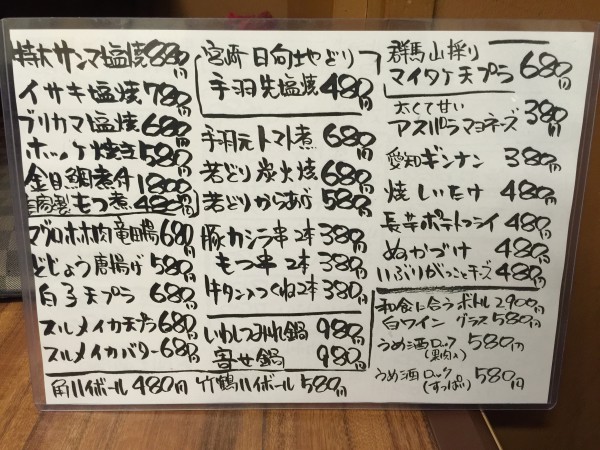 特大サンマ塩焼880円
イサキ塩焼780円
ブリカマ塩焼680円
ホッケ焼き580円
金目鯛煮付1800円
自家製もつ煮480円
マグロホホ肉竜田揚680円
どじょう唐揚げ580円
白子天プラ680円
スルメイカ天プラ680円
スルメイカバター680円
宮崎日向土やどり
手羽先塩焼480円
手羽元トマト煮680円
若どり炭火焼680円
若どりからあげ580円
豚カシラ串2本380円
もつ串2本380円
牛タン入つくね2本380円
いわしつみれ鍋980円
寄せ鍋980円
群馬山採り
マイタケ天プラ680円
太くてせい
アスパラマヨネーズ380円
愛知ギンナン380円
焼しいたけ480円
長芋ポテトフライ480円
ぬかづけ480円
いぶりがっことチーズ480円
和食に合うボトル2900円
白ワイン グラス580円
うめ酒ロック580円
(果肉入)
うめ酒ロック580円
(すっぱい)
角ハイボール480円 竹鶴ハイボール580円